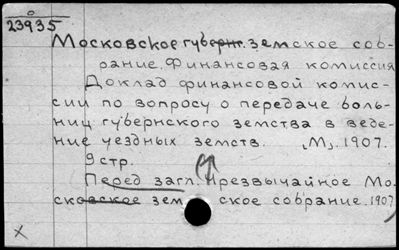 23935
Московское губернг. земское соб-
рание. Финансовая комиссия
Доклад финансовой комис-
сии по вопросу о передаче боль-
ниц губернского земства в веде-
ние уездных земств. М., 1907.
9 стр.
Перед загл. Чрезвычайное Мо-
сковское зем ское собрание. 1907
х